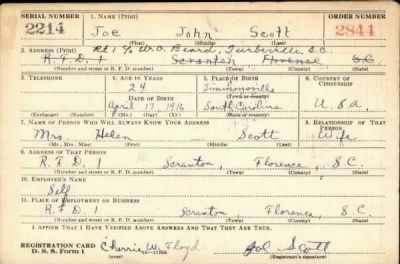 SERIAL NUMBER 1. NAME (Print) ORDER NUMBER
2214 Joe John Scott 2844
(First) (Middle) (Last)
2. ADDRESS (Print) Rt 1 % W.O. Beard, Turbeville, S.C.
R.F.D. 1 Scranton Florence S.C.
(Number and street or R. F. D. number) (Town) (County) (State)
3. TELEPHONE 4. AGE IN YEARS 5. PLACE OF BIRTH 6. COUNTRY OF CITIZENSHIP
24 Timmonsville
DATE OF BIRTH (Town or county)
April 17 1916 South Carolina U.S.A.
(Exchange) (Number) (Mo.) (Day) (Yr.) (State or country)
7. NAME OF PERSON WHO WILL ALWAYS KNOW YOUR ADDRESS 8. RELATIONSHIP OF THAT PERSON
Mrs. Helen Scott Wife
(Mr., Mrs., Miss) (First) (Middle) (Last)
9. ADDRESS OF THAT PERSON
R.F.D. 1 Scranton, Florence, S C.
(Number and street or R. F. D. number) (Town) (County) (State)
10. EMPLOYER'S NAME
Self
11. PLACE OF EMPLOYMENT OR BUSINESS
R.F.D. 1 Scranton, Florence, S C.
(Number and street or R. F. D. number) (Town) (County) (State)
I AFFIRM THAT I HAVE VERIFIED ABOVE ANSWERS AND THAT THEY ARE TRUE.
REGISTRATION CARD Cherrie W. Floyd Joe Scott
D. S. S. Form 1 (over) (Registrant's signature)